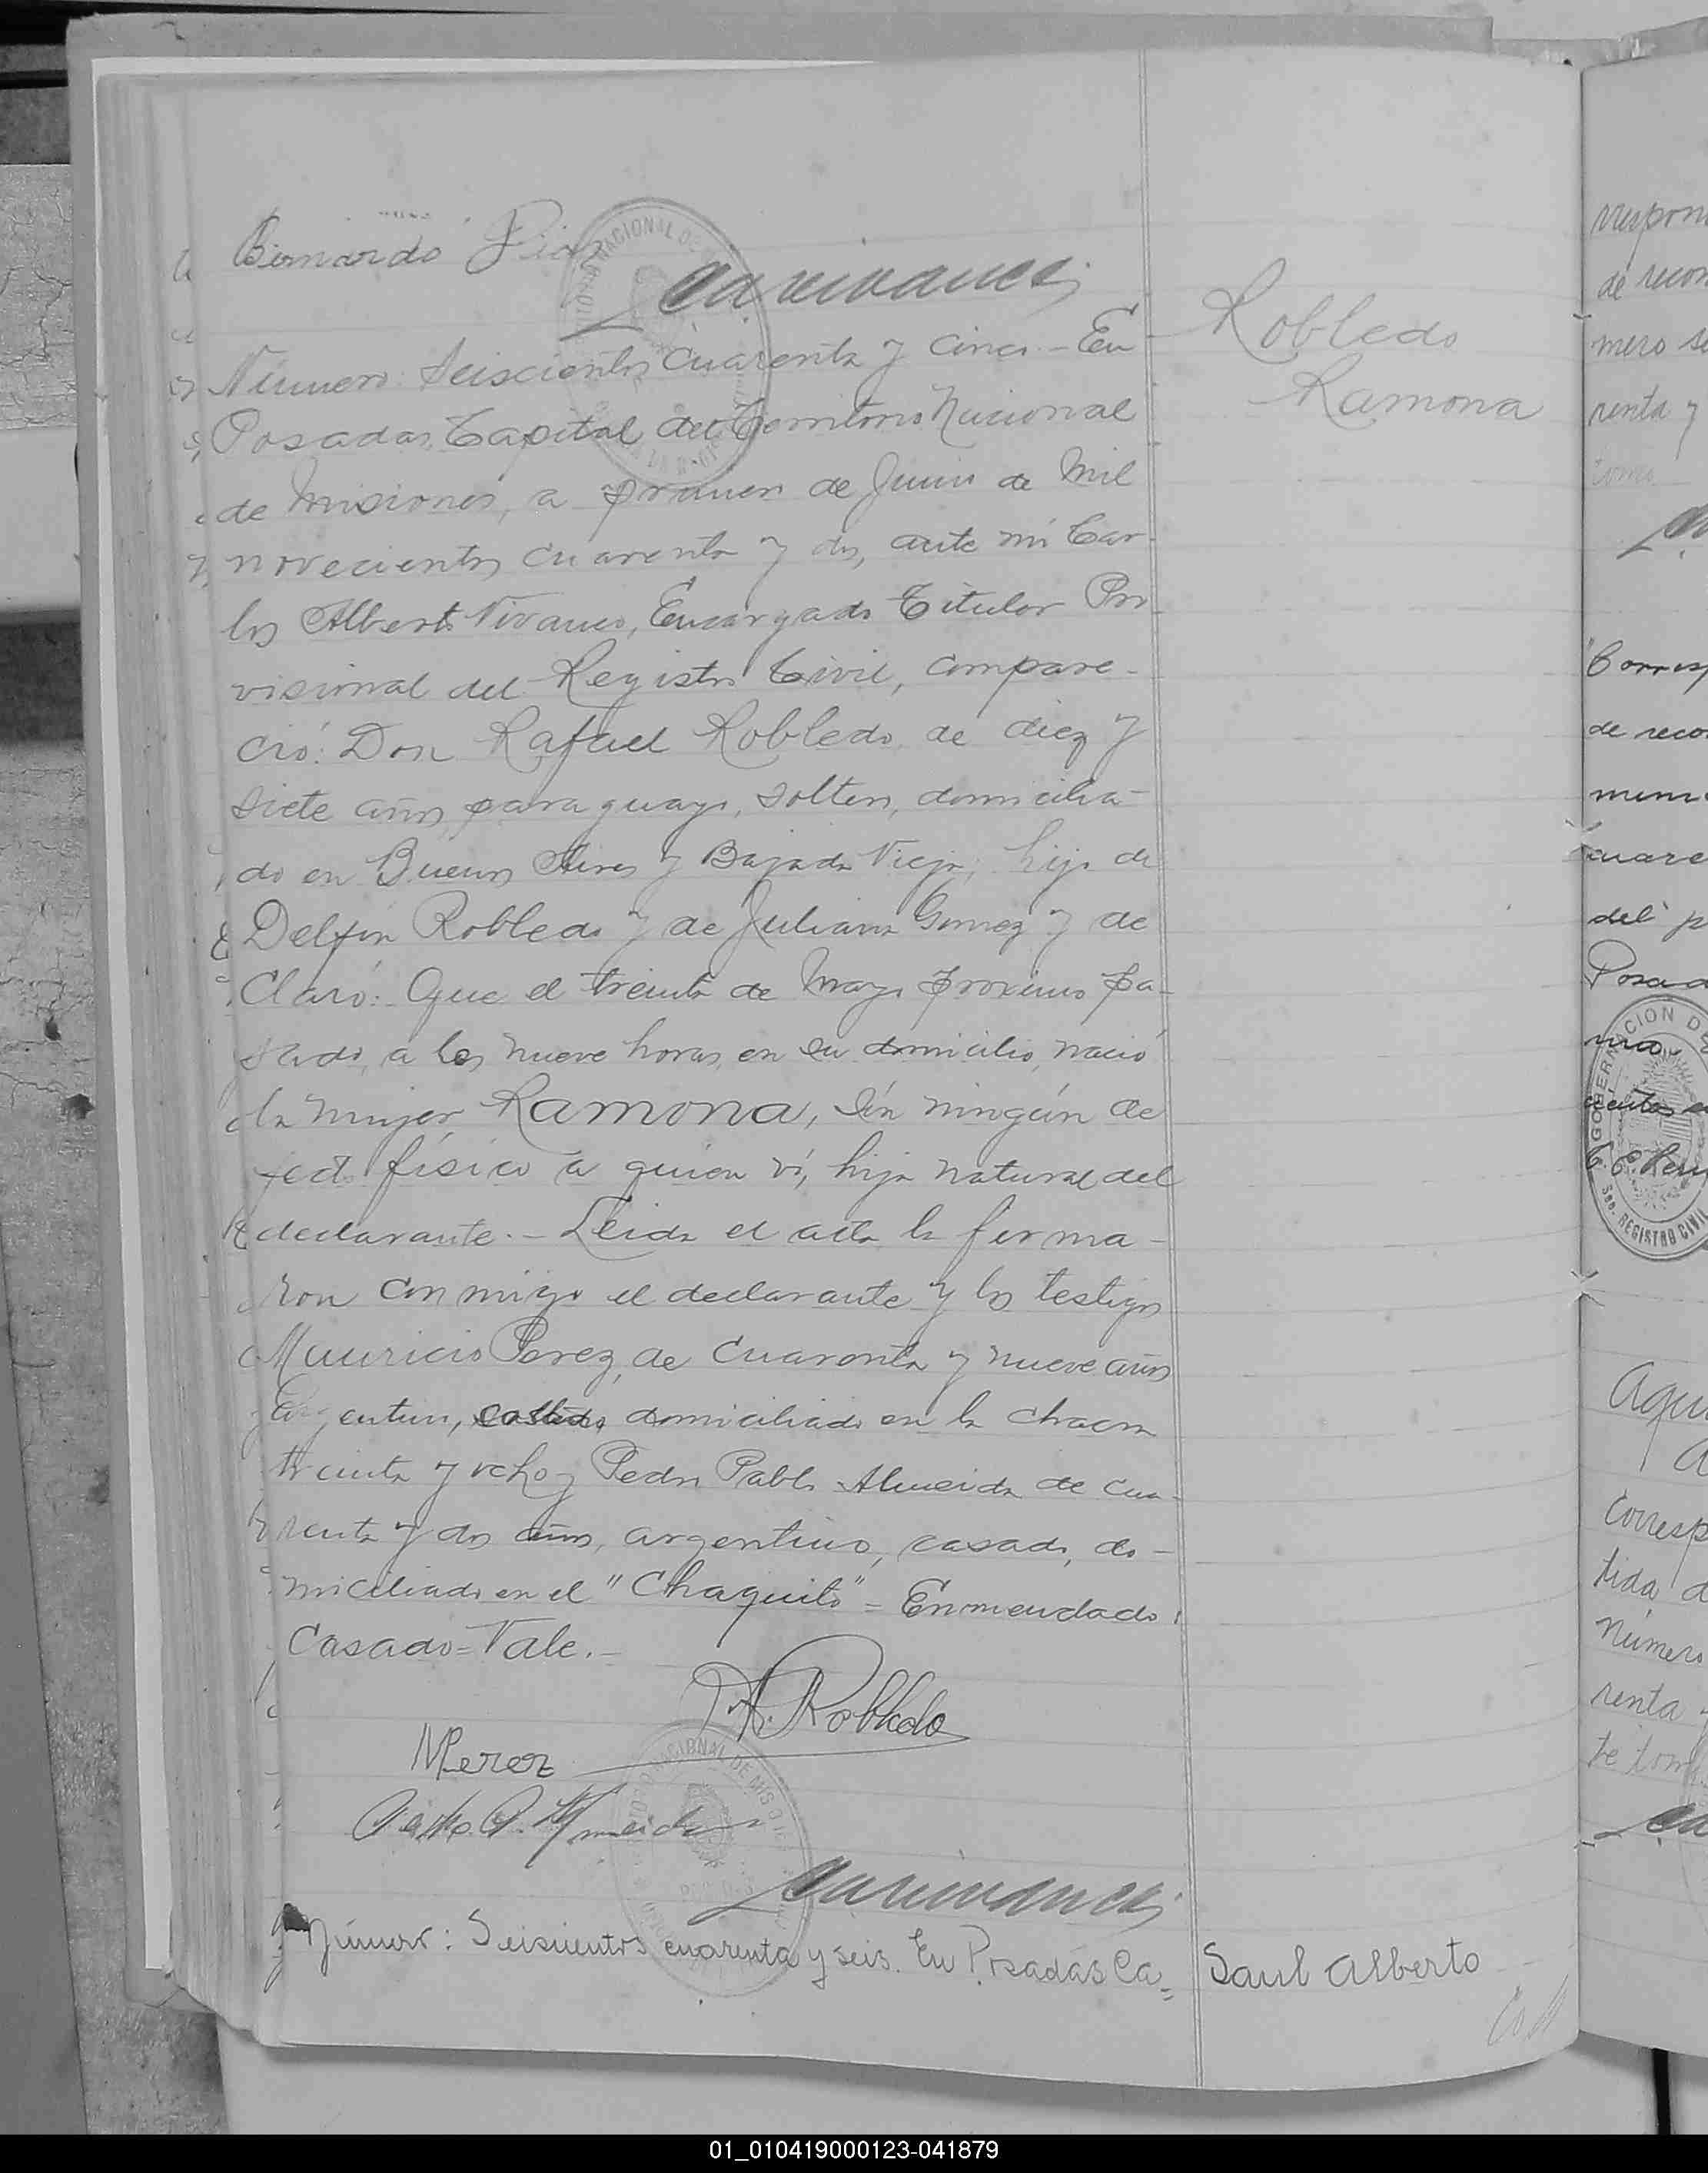 Bernardo
Número: Seiscientos cuarenta y cinco - En
Posadas, Capital del Territorio Nacional
de Misiones, a primero de Junio de Mil
novecientos cuarenta y dos, ante mí Car-
los Alberto Vivanco, Encargado Titular Pro
visional del Registro Civil, compare-
ció: Don Rafael Robledo, de diez y
siete años, paraguayo, soltero, domicilia-
do en Buenos Aires y Bajada Vieja, hijo de
Delfín Robledo y de Juliana Gomez y de
Claró: Que el treinta de Mayo próximo pa-
sado, a las nueve horas, en su domicilio, nació
la mujer Ramona, sin ningún de
fecto físico a quien ví, hija natural del
declarante. - Leida el acta la firma-
ron conmigo el declarante y los testigos
Mauricio Perez, de cuarenta y nueve años
argentino, casado, domiciliado en la chacra
treinta y ocho y Pedro Pablo Almeida de cua-
renta y dos años, argentino, casado, do-
miciliado en el "Chaquito" = Enmendado:
Casado = Vale. -
Robledo
MPerez
Pedro P. Almeida
Número: Seiscientos cuarenta y seis. En Posadas Ca-
Robledo
Ramona
Saul Alberto
de recon
renta y
Corresp
de reco
cuare
del p
Posad
GOBERNACION DE
Sec. REGISTRO CIVIL
Corresp
tida d
Número
renta y
te tom
01_010419000123-041879